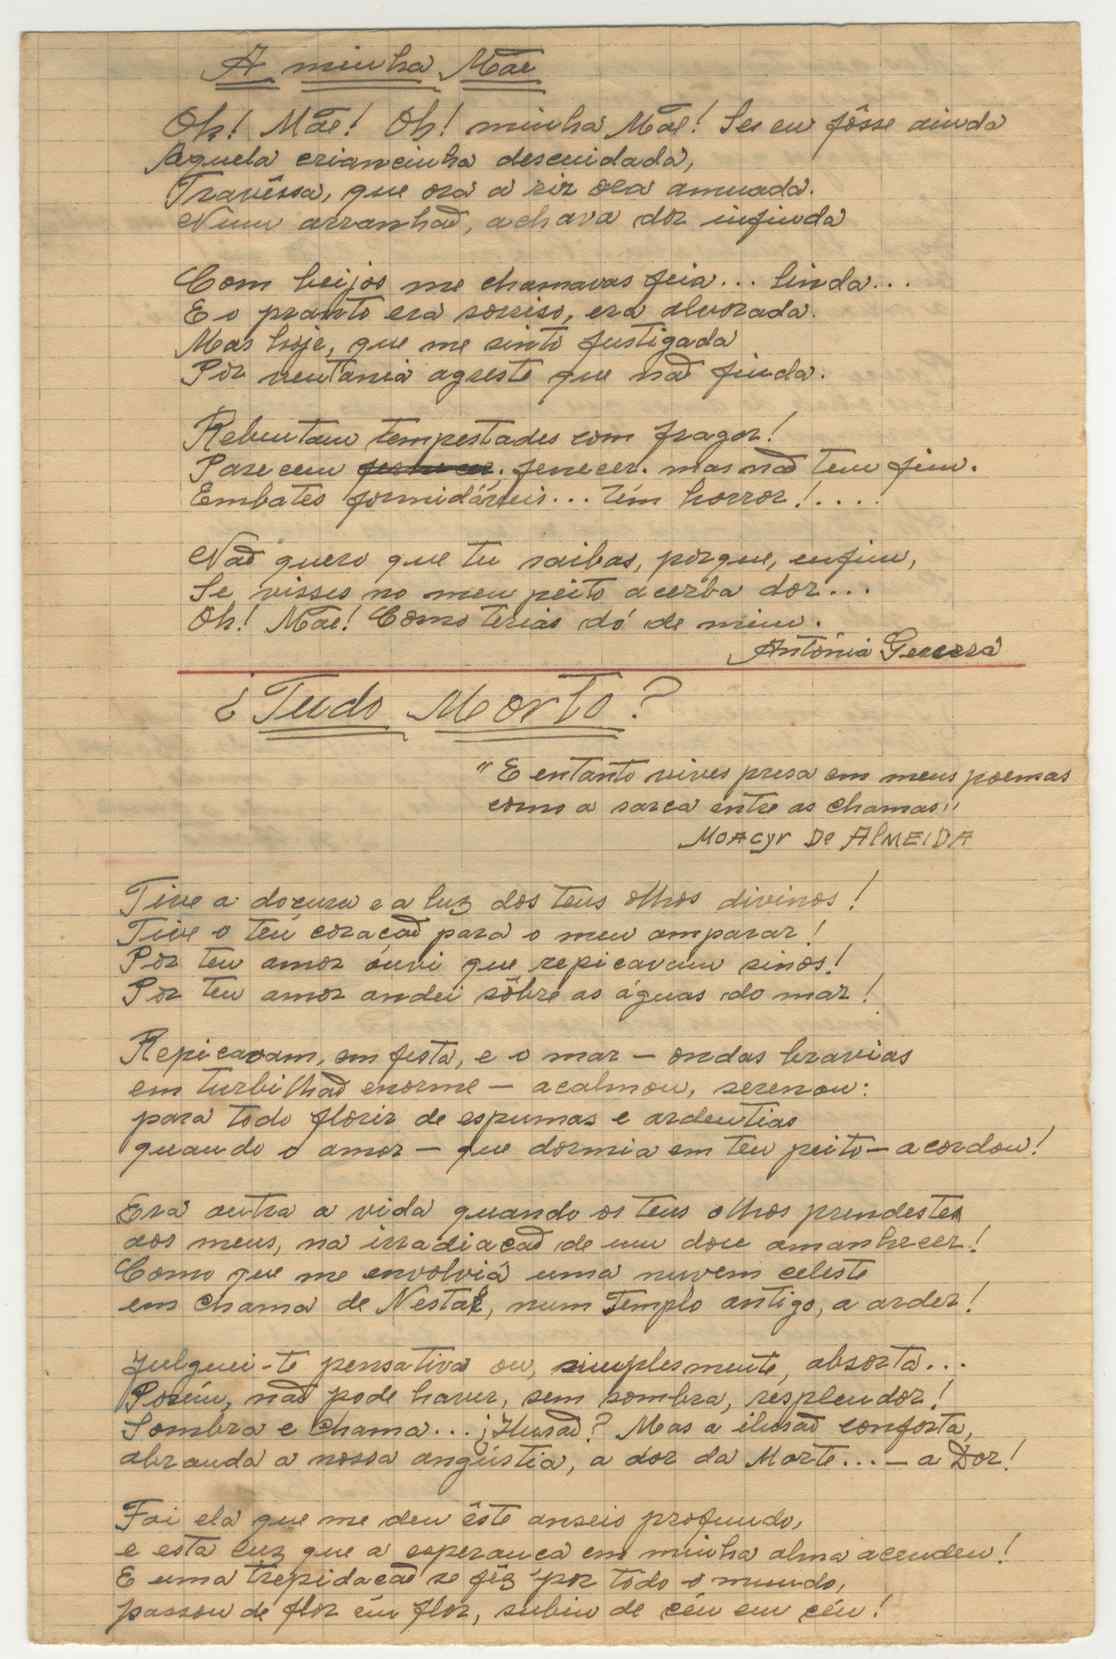 A minha Mãe
Oh! Mãe! Oh! minha Mãe! Se eu fôsse ainda
Aquela criancinha descuidada,
Travêssa, que ora a rir ora amuada.
Num arranhão, achava dor infinda
Com beijos me chamavas feia... linda...
E o pranto era sorriso, era alvorada.
Mas hoje, que me sinto fustigada
Por ventania agreste que não finda.
Rebentam tempestades com fragor!
Parecem fenecer. mas não tem fim.
Embates formidáveis... Têm horror!....
Não quero que tu saibas, porque, enfim,
Se visses no meu peito acerba dor...
Oh! Mãe! Como terias dó de mim.
Antónia
¿Tudo Morto?
"E entanto vives presa em meus poemas
como a sarça entre as chamas"
MOACyr De AlMEIDA
Tive a doçura e a luz dos teus olhos divinos!
Tive o teu coração para o meu amparar!
Por teu amor ouvi que repicavam sinos!
Por teu amor andei sôbre as águas do mar!
Repicavam, em festa, e o mar - ondas bravias
em turbilhão enorme - acalmou, serenou:
para todo florir de espumas e ardentias
quando o amor - que dormia em teu peito - acordou!
Era outra a vida quando os teus olhos prendeste
aos meus, na irradiação de um doce amanhecer!
Como que me envolvia uma nuvem celeste
em chama de num Templo antigo, a arder!
Julguei-te pensativa ou, simplesmente, absorta...
Porém, não pode haver, sem sombra, resplendor!
Sombra e Chama... ¿Ilusão? Mas a ilusão conforta,
abranda a nossa angústia, a dor da Morte... - a Dor!
Foi ela que me deu êste anseio profundo,
e esta luz que a esperança em minha alma acendeu!
E uma trepidação se fêz por todo o mundo,
passou de flor em flor, subiu de céu em céu!